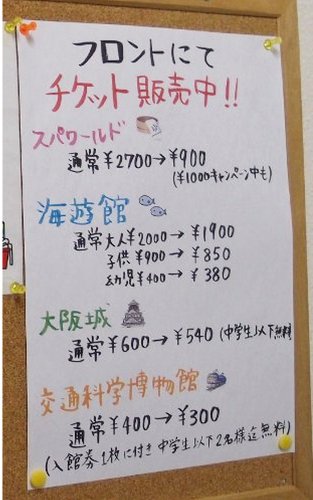 フロントにて
チケット販売中!!
スパワールド
通常¥2700→¥900
(¥1000キャンペーン中も)
海遊館
通常大人¥2000→¥1900
子供¥900→¥850
幼児¥400→¥380
大阪城
通常¥600→¥540(中学生以下無料)
交通科学博物館
通常¥400→¥300
(入館券1枚に付き中学生以下2名様迄無料)